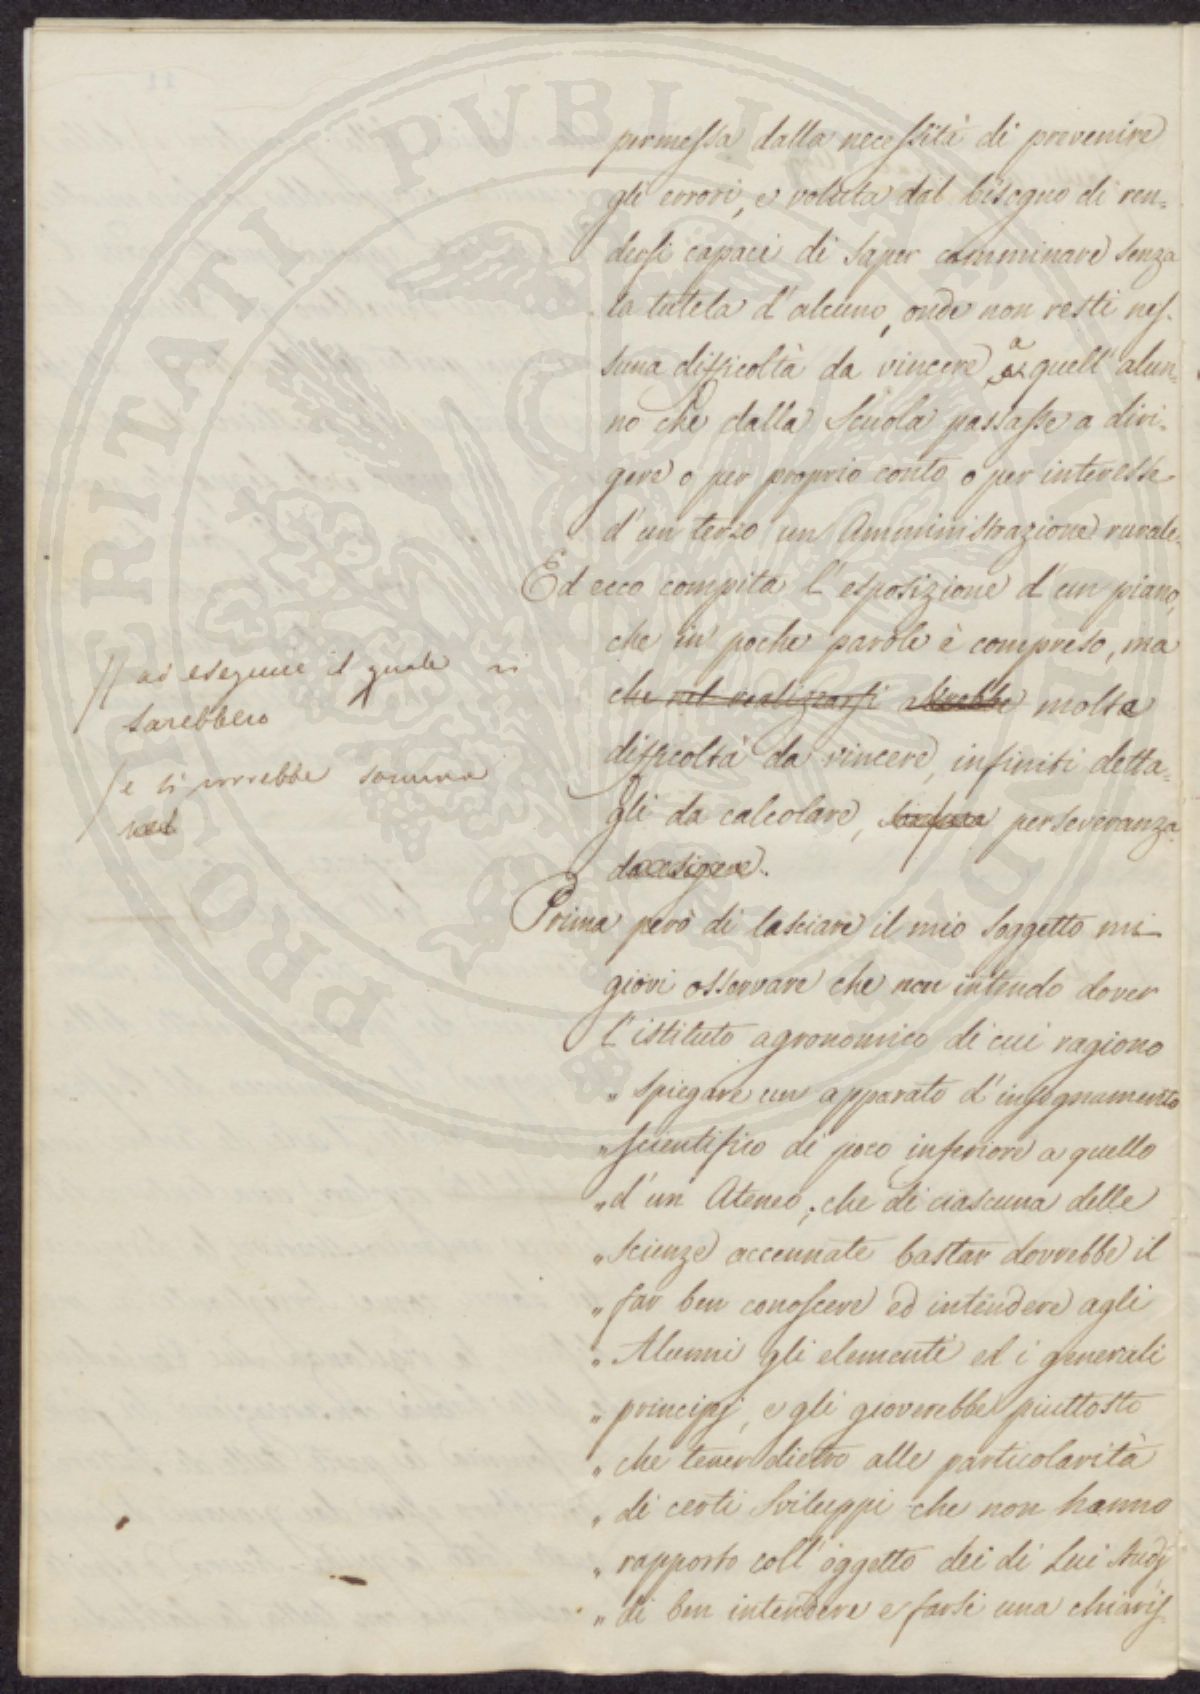 permessa dalla necessità di prevenire
gli errori, e voluta dal bisogno di ren=
dersi capaci di saper camminare senza
la tutela d'alcuno, onde non resti nes=
suna difficoltà da vincere a quell'alun=
no che dalla Scuola passasse a diri=
gere o per proprio conto o per interesse
d'un terzo un Amministrazione rurale.
Ed ecco compita l'esposizione d'un piano,
che in poche parole è compreso, ma
che nel realizzarsi avrebbe molte
difficoltà da vincere, infiniti detta=
gli da calcolare, perseveranza
da esigere.
// ad eseguire il quale vi
sarebbero
/ e si vorrebbe somma
Prima però di lasciare il mio soggetto mi
giovi osservare che non intendo dover
l'istituto agronomico di cui ragiono
" spiegare un apparato d'insegnamento
" scientifico di poco inferiore a quello
" d'un Ateneo; che di ciascuna delle
" scienze accennate bastar dovrebbe il
" far ben conoscere ed intendere agli
" Alunni gli elementi ed i generali
" principj, e gli gioverebbe piuttosto
" che tener dietro alle particolarità
" di certi sviluppi che non hanno
" rapporto coll'oggetto dei di Lui studj
" di ben intendere e farsi una chiaris
PUBLI
PROSPERITATI